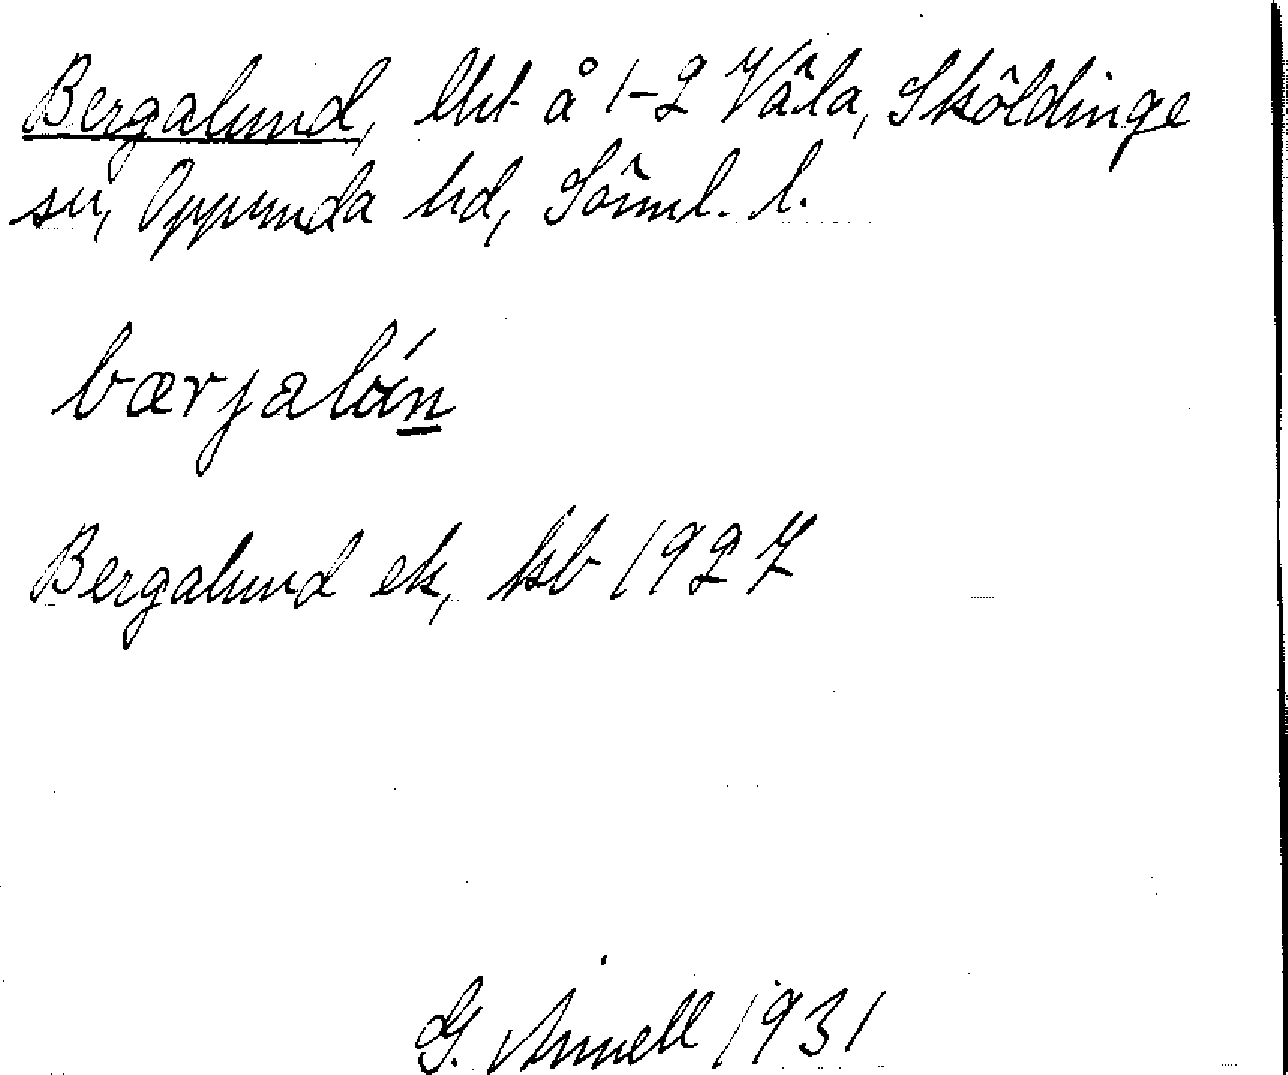 Bergalund, lht å 1-2 Våla, Sköldinge
sn, Oppunda hd, Söml. l.
bærjalón
Bergalund ek, kb 1927
G. Annell 1931